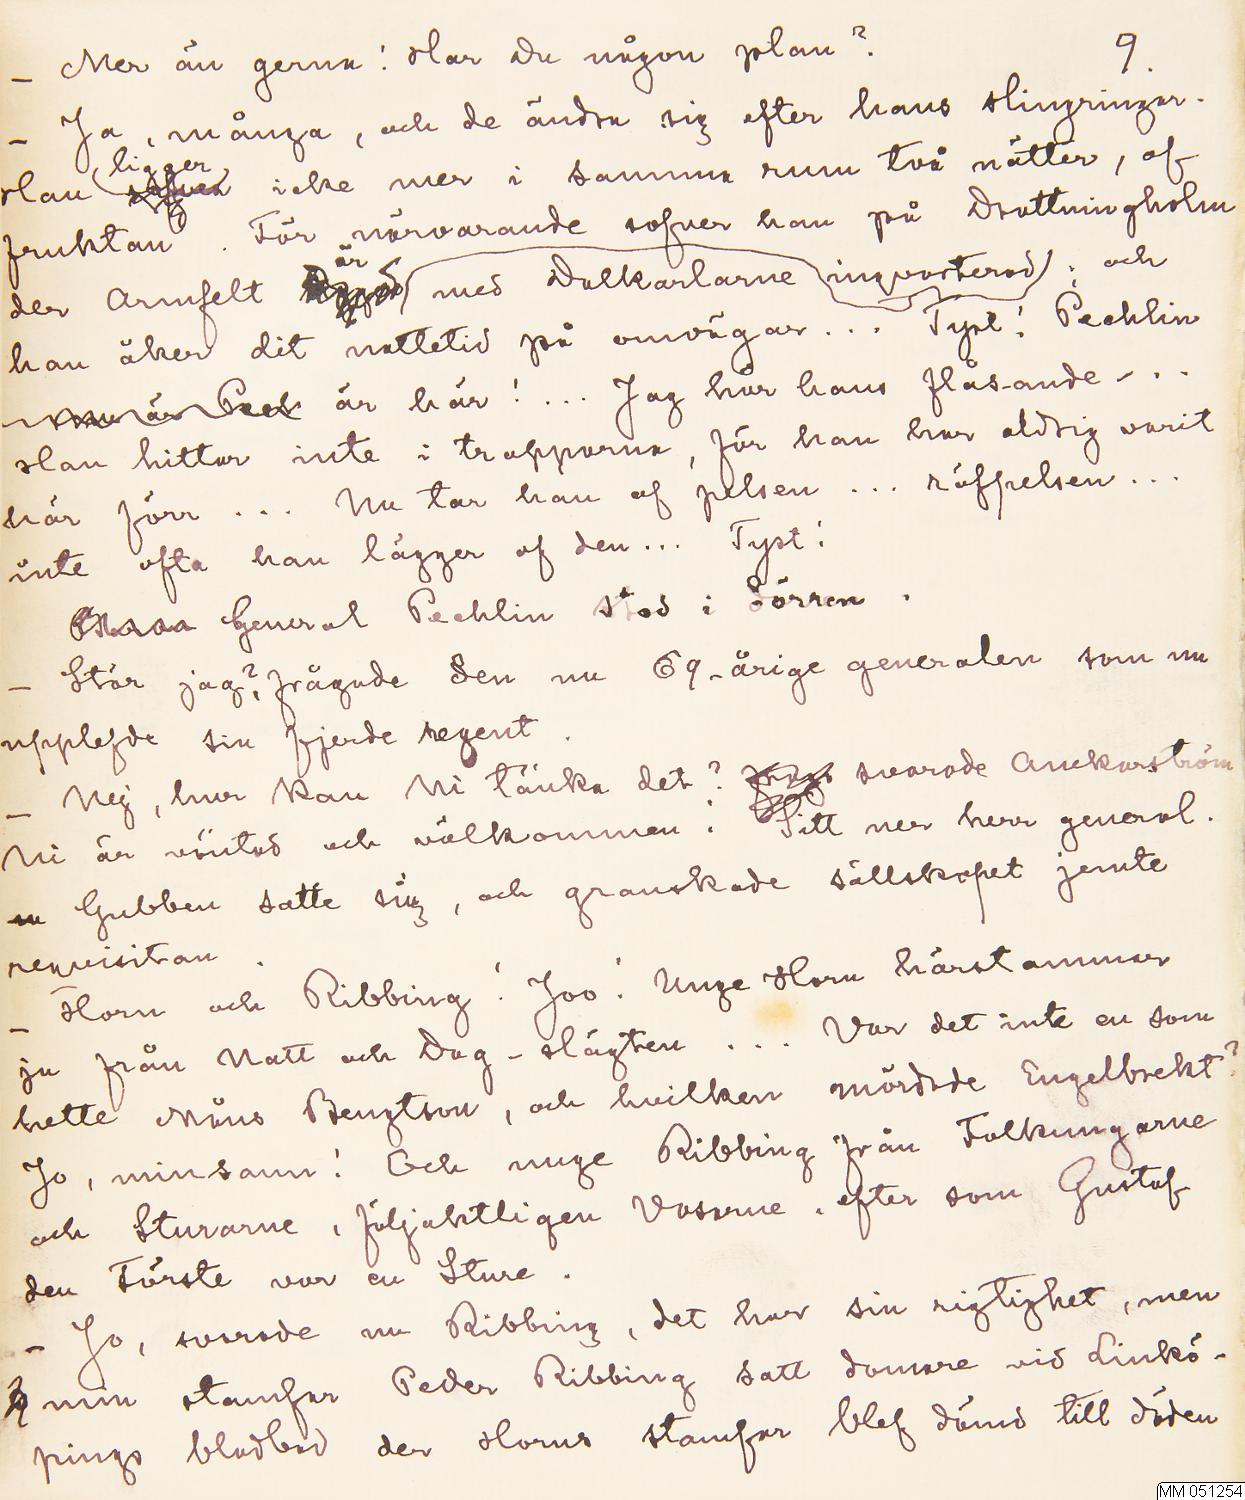 9.
– Mer än gerna! Har Du någon plan?
– Ja, många, och de ändra sig efter hans slingringar.
Han ligger icke mer i samma rum två nätter, af
fruktan. För närvarande sofver han på Drottningholm
der Armfelt är med Dalkarlarne inqvarterad; och
han åker dit nattetid på omvägar... Tyst! Pechlin
är här!... Jag hör hans flåsande...
Han hittar inte i trapporna, för han har aldrig varit
här förr... Nu tar han af pelsen... räfpelsen...
inte ofta han lägger af den... Tyst!
General Pechlin stod i dörren.
– Stör jag?, frågade den nu 69-årige generalen som nu
upplefde sin fjerde regent.
– Nej, hur kan Ni tänka det? svarade Anckarström
Ni är väntad och välkommen! Sitt ner herr general.
Gubben satte sig, och granskade sällskapet jemte
requisitan.
– Horn och Ribbing! Joo! Unge Horn härstammar
ju från Natt och Dag-slägten... Var det inte en som
hette Måns Bengtson, och hvilken mördade Engelbrekt?
Jo, minsann! Och unge Ribbing från Folkungarne
och Sturarne, följaktligen Vasarne, efter som Gustaf
den Förste var en Sture.
– Jo, svarade nu Ribbing, det har sin rigtighet, men
min stamfar Peder Ribbing satt domare vid Linkö-
pings blodbad der Horns stamfar blef dömd till döden
MM 051254